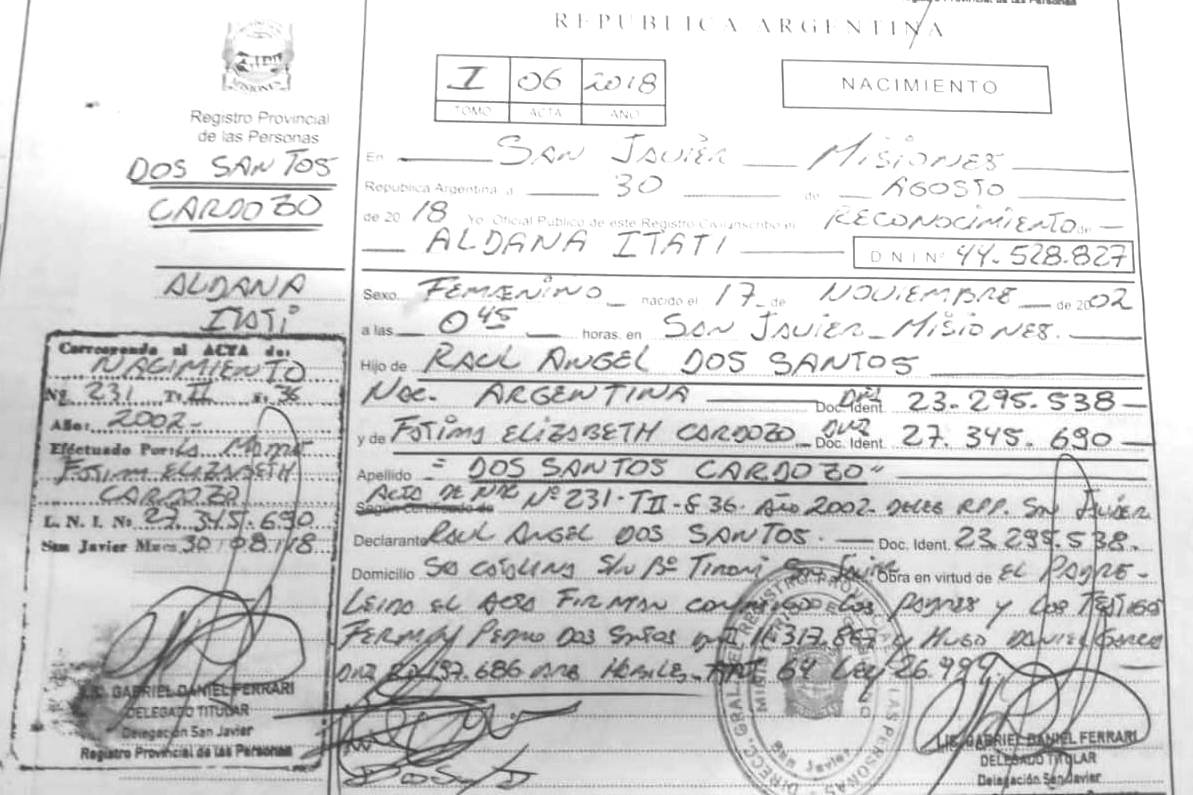 REPUBLICA ARGENTINA
Registro Provincial
de las Personas
DOS SANTOS
CARDOZO
ALDANA
ITATI
Corresponde al ACTA de:
NACIMIENTO
Nº 231 Tº II Fº 36
Año: 2002-
Efectuado Por: La Madre
FATIMA ELIZABETH
CARDOZO
L. N. I. No 27.345.690
San Javier Mnes 30/08/18
LIC. GABRIEL DANIEL FERRARI
DELEGADO TITULAR
Delegación San Javier
Registro Provincial de las Personas
I 06 2018
TOMO ACTA AÑO
NACIMIENTO
En SAN JAVIER MISIONES
República Argentina a 30 de AGOSTO
de 2018 Yo Oficial Público de este Registro Civil inscribo el RECONOCIMIENTO de
ALDANA ITATI DNI Nº 44.528.827
Sexo FEMENINO nacido el 17 de NOVIEMBRE de 2002
a las 0 45 horas, en SAN JAVIER-MISIONES.
Hijo de RAUL ANGEL DOS SANTOS
NAC. ARGENTINA DNI Doc. Ident. 23.295.538
y de FATIMA ELIZABETH CARDOZO DNI Doc. Ident. 27.345.690
Apellido = DOS SANTOS CARDOZO"
ACTA DE NAC Nº 231-TII-F 36 Año 2002- DELEG RPP. SAN JAVIER
Según Certificado de
Declarante RAUL ANGEL DOS SANTOS. Doc. Ident. 23.295.538.
Domicilio S/N Bº San Javier Obra en virtud de EL PADRE-
LEIDO EL ACTA FIRMAN CONMIGO LOS PADRES Y LOS TESTIGOS
PEDRO DOS SANTOS DNI 16.317.867 y HUGO DANIEL
DNI HABILES- ART 64 Ley 26.994
San Javier
LIC. GABRIEL DANIEL FERRARI
DELEGADO TITULAR
Delegación San Javier